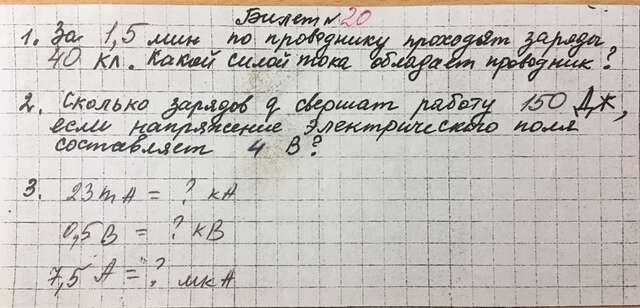 Билет № 20
1. За 1,5 мин по проводнику проходят заряды
40 кл. Какой силой тока обладает проводник?
2. Сколько зарядов q свершат работу 150 Дж,
если напряжение электрического поля
составляет 4 В?
3. 23 mA = ? кА
0,5 В = ? кВ
7,5 А = ? мкА